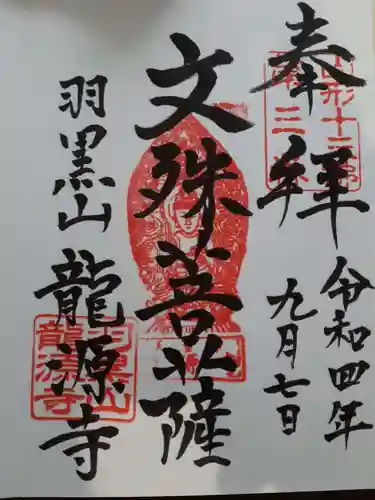 奉拝
令和四年
九月七日
文殊菩薩
羽黒山 龍源寺
羽黒山
龍源寺